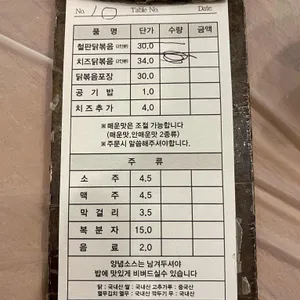 No. 10 Table No. Date.
품 명 단가 수량 금액
철판닭볶음 (2인분) 30,0
치즈닭볶음 (2인분) 34,0
닭볶음포장 30,0
공 기 밥 1,0
치즈추가 4,0
※매운맛은 조절 가능합니다
(매운맛,안매운맛 2종류)
※주문시 말씀해주셔야합니다.
주 류
소 주 4,5
맥 주 4,5
막걸리 3,5
복분자 15,0
음 료 2,0
양념소스는 남겨두셔야
밥에 맛있게 비벼드실수 있습니다
닭 : 국내산 쌀 : 국내산 고추가루 : 중국산
열무김치 열무 : 국내산 깍두기 무 : 국내산